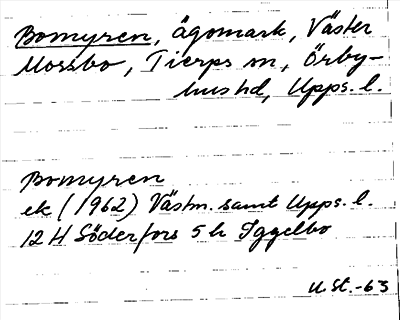 Bomyren, ägomark, Väster
Mossbo, Tierps sn, Örby-
hus hd, Upps. l.
Bomyren
ek (1962) Västm. samt Upps. l.
12 H Söderfors 5 h Iggelbo
U St. -63